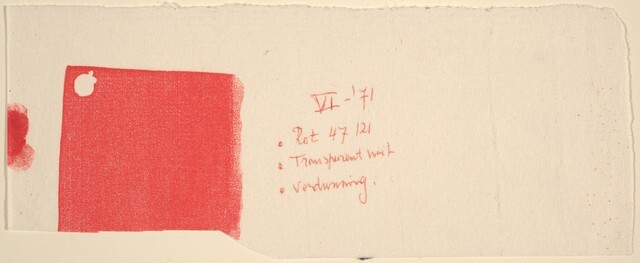 VI-'71
• Rot 47 121
• Transparent weit
• Verdunning.